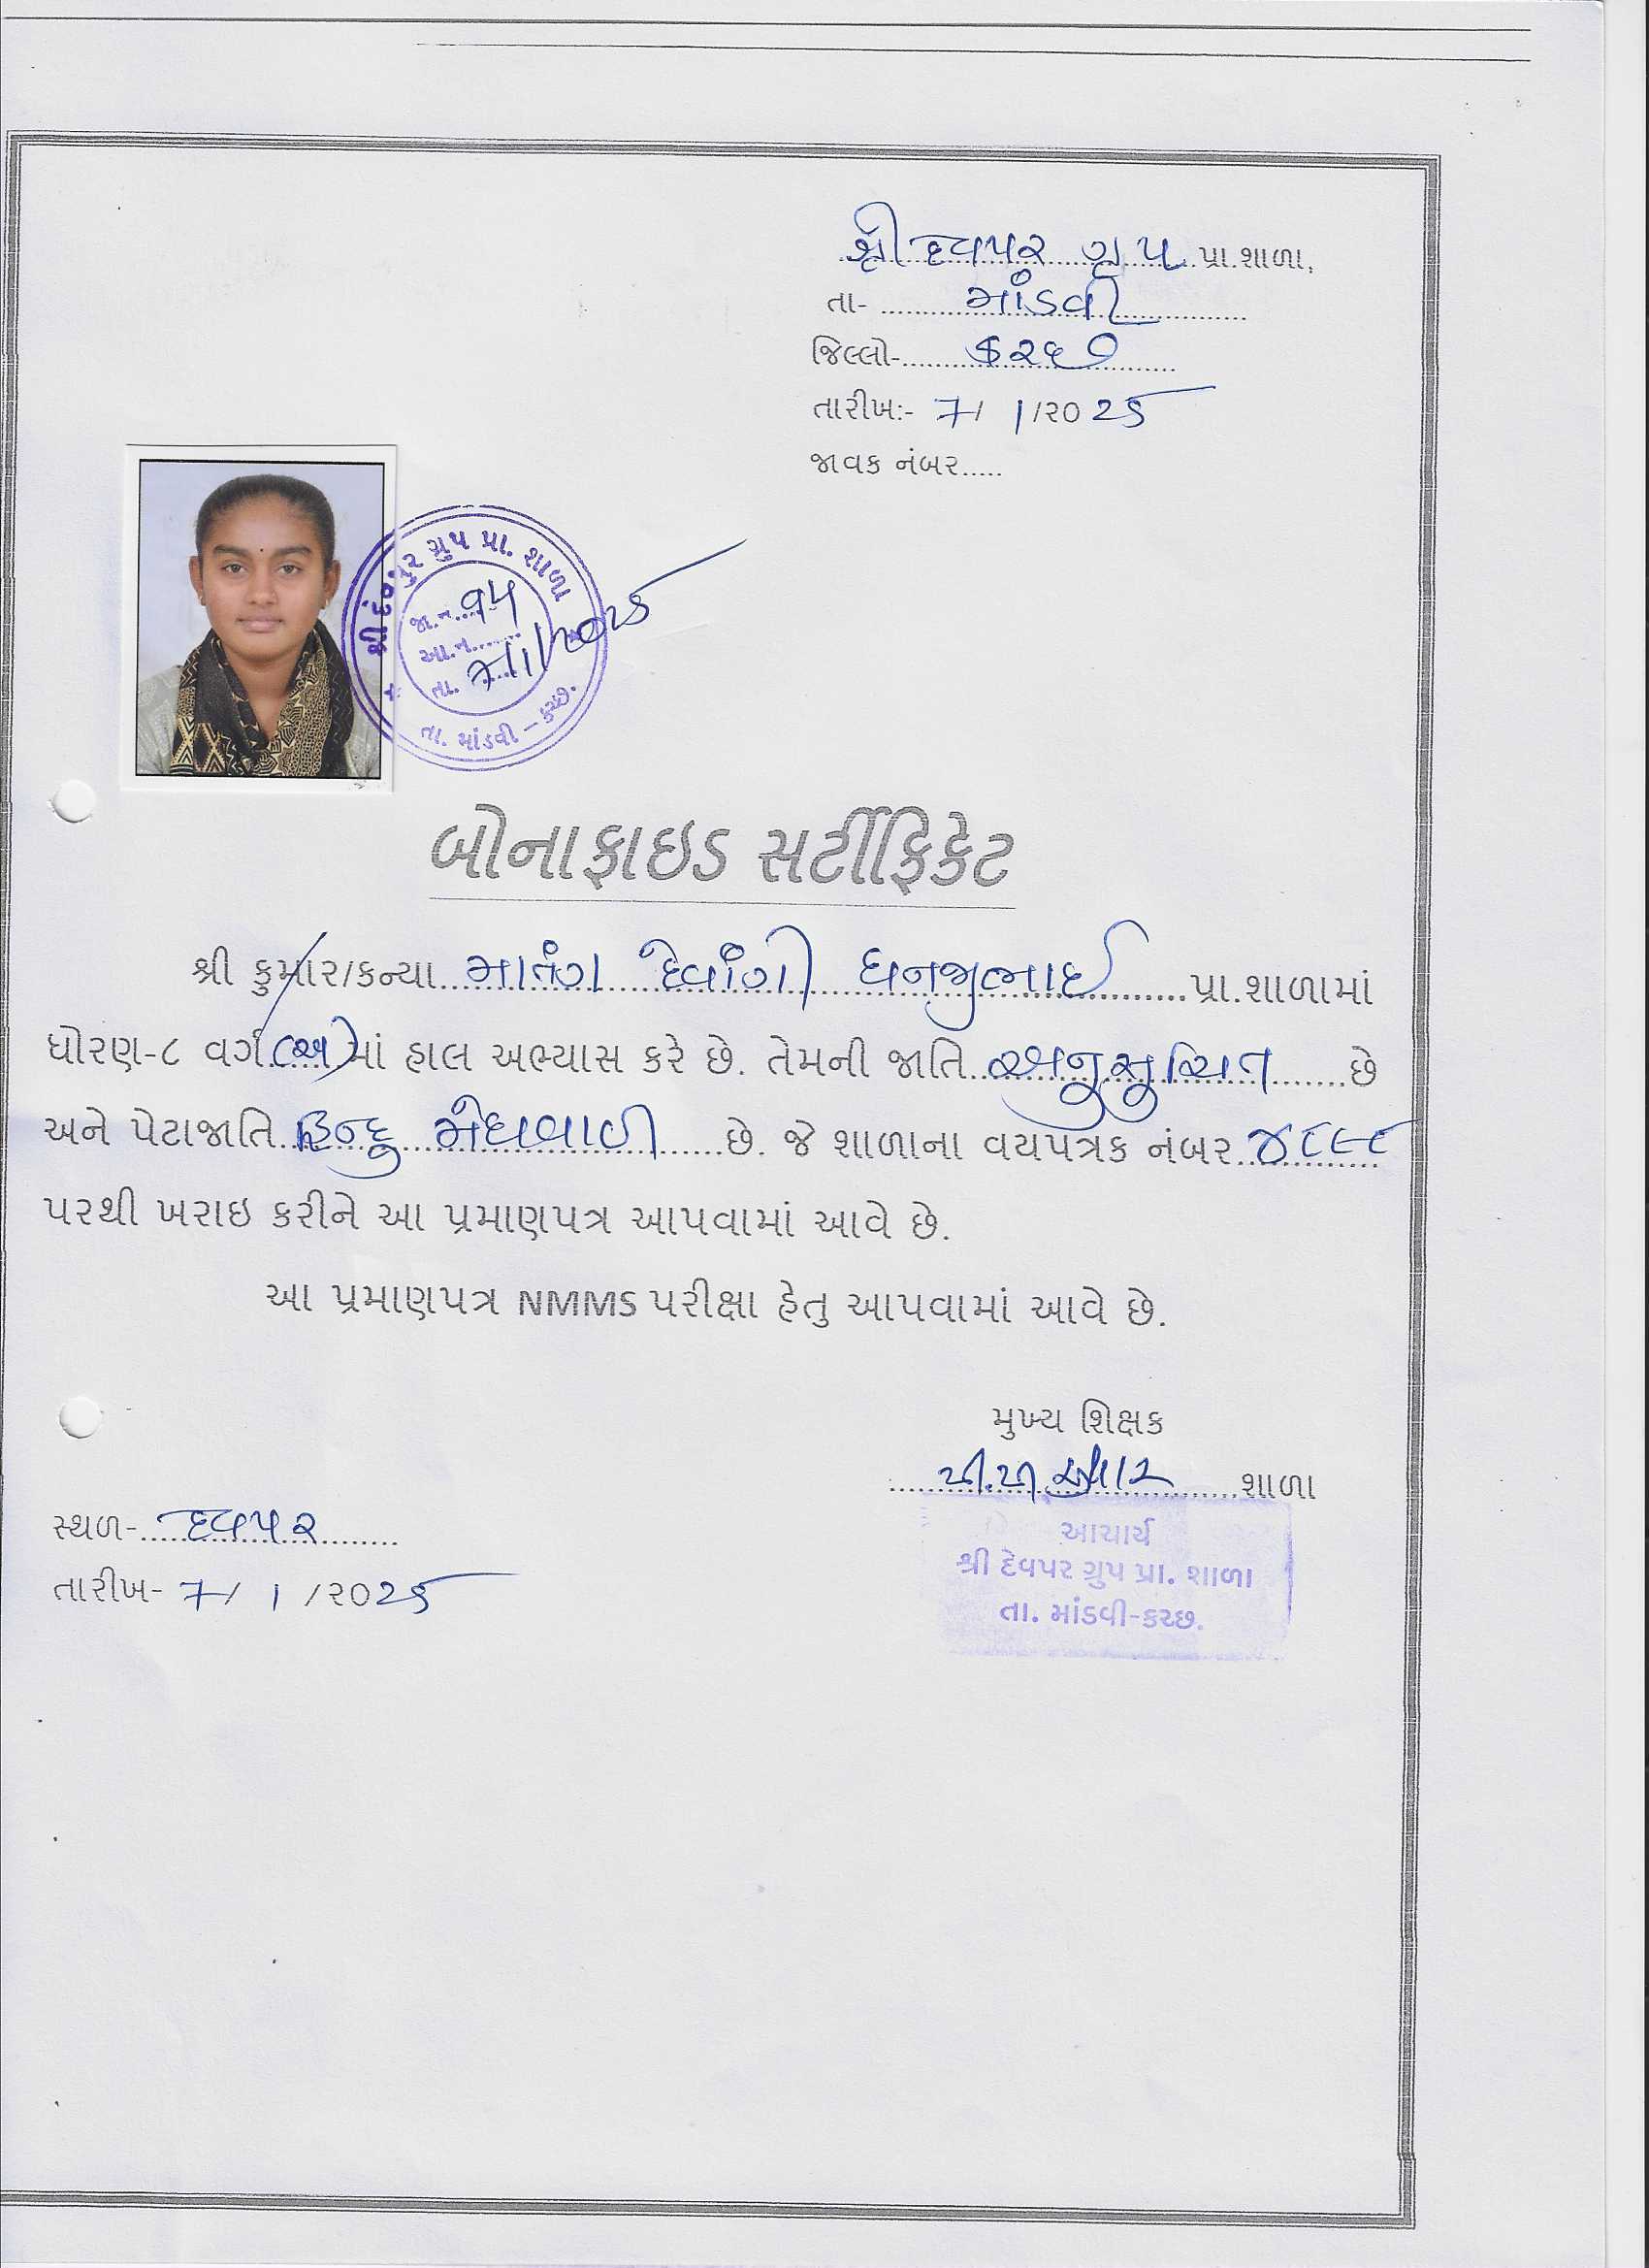 શ્રી દેવપર ગ્રુપ પ્રા.શાળા,
તા- માંડવી
જિલ્લો- કચ્છ
તારીખ:- 7/ 1 /૨૦25
જાવક નંબર.....
શ્રી દેવપુર ગ્રુપ પ્રા. શાળા
જા.ન... ૧૫
આ.ન.......
તા. 7/1/2025
તા. માંડવી - કચ્છ.
બોનાફાઇડ સર્ટીફિકેટ
શ્રી કુમાર/કન્યા માતંગ દેવાંગી ધનજીભાઈ પ્રા.શાળામાં
ધોરણ-૮ વર્ગ (અ) માં હાલ અભ્યાસ કરે છે. તેમની જાતિ અનુસુચિત છે
અને પેટાજાતિ હિન્દુ મેઘવાળ છે. જે શાળાના વયપત્રક નંબર
પરથી ખરાઇ કરીને આ પ્રમાણપત્ર આપવામાં આવે છે.
આ પ્રમાણપત્ર NMMS પરીક્ષા હેતુ આપવામાં આવે છે.
મુખ્ય શિક્ષક
શાળા
આચાર્ય
શ્રી દેવપર ગ્રુપ પ્રા. શાળા
તા. માંડવી-કચ્છ.
સ્થળ- દેવપર
તારીખ- 7/ 1 /૨૦25